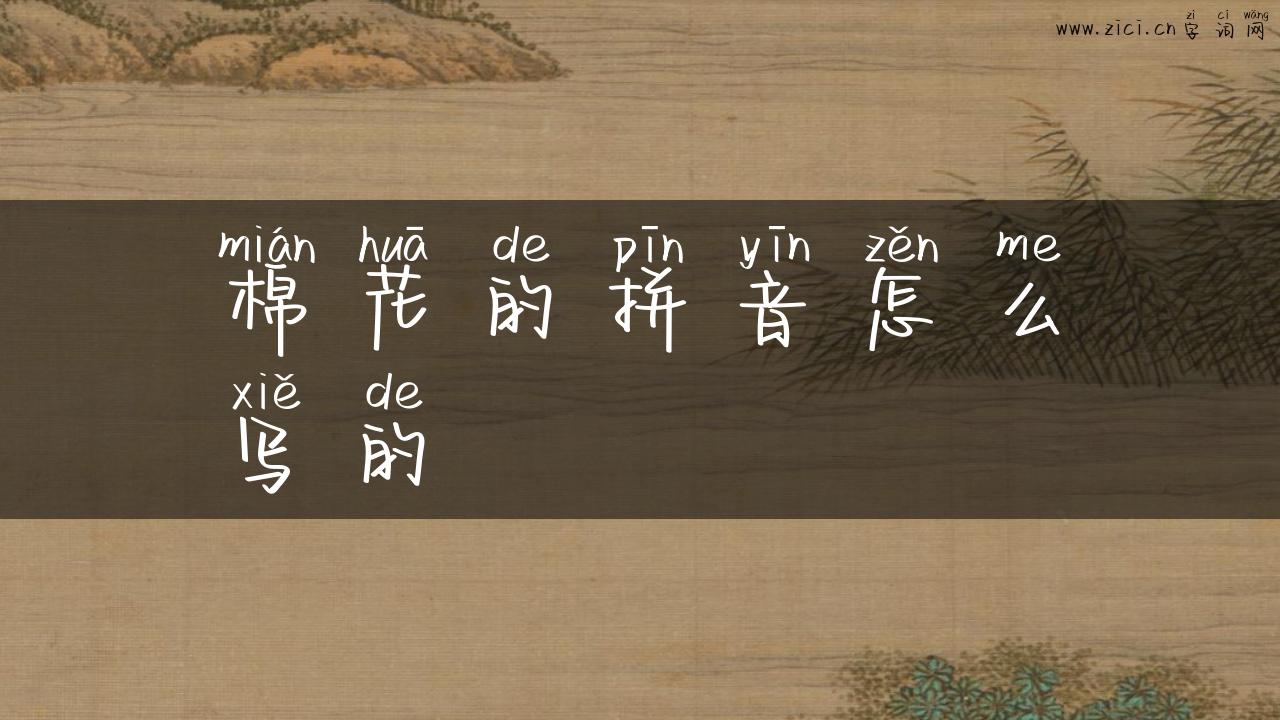 zì cí wǎng
www.zici.cn 字词网
mián huā de pīn yīn zěn me
棉花的拼音怎么
xiě de
写的